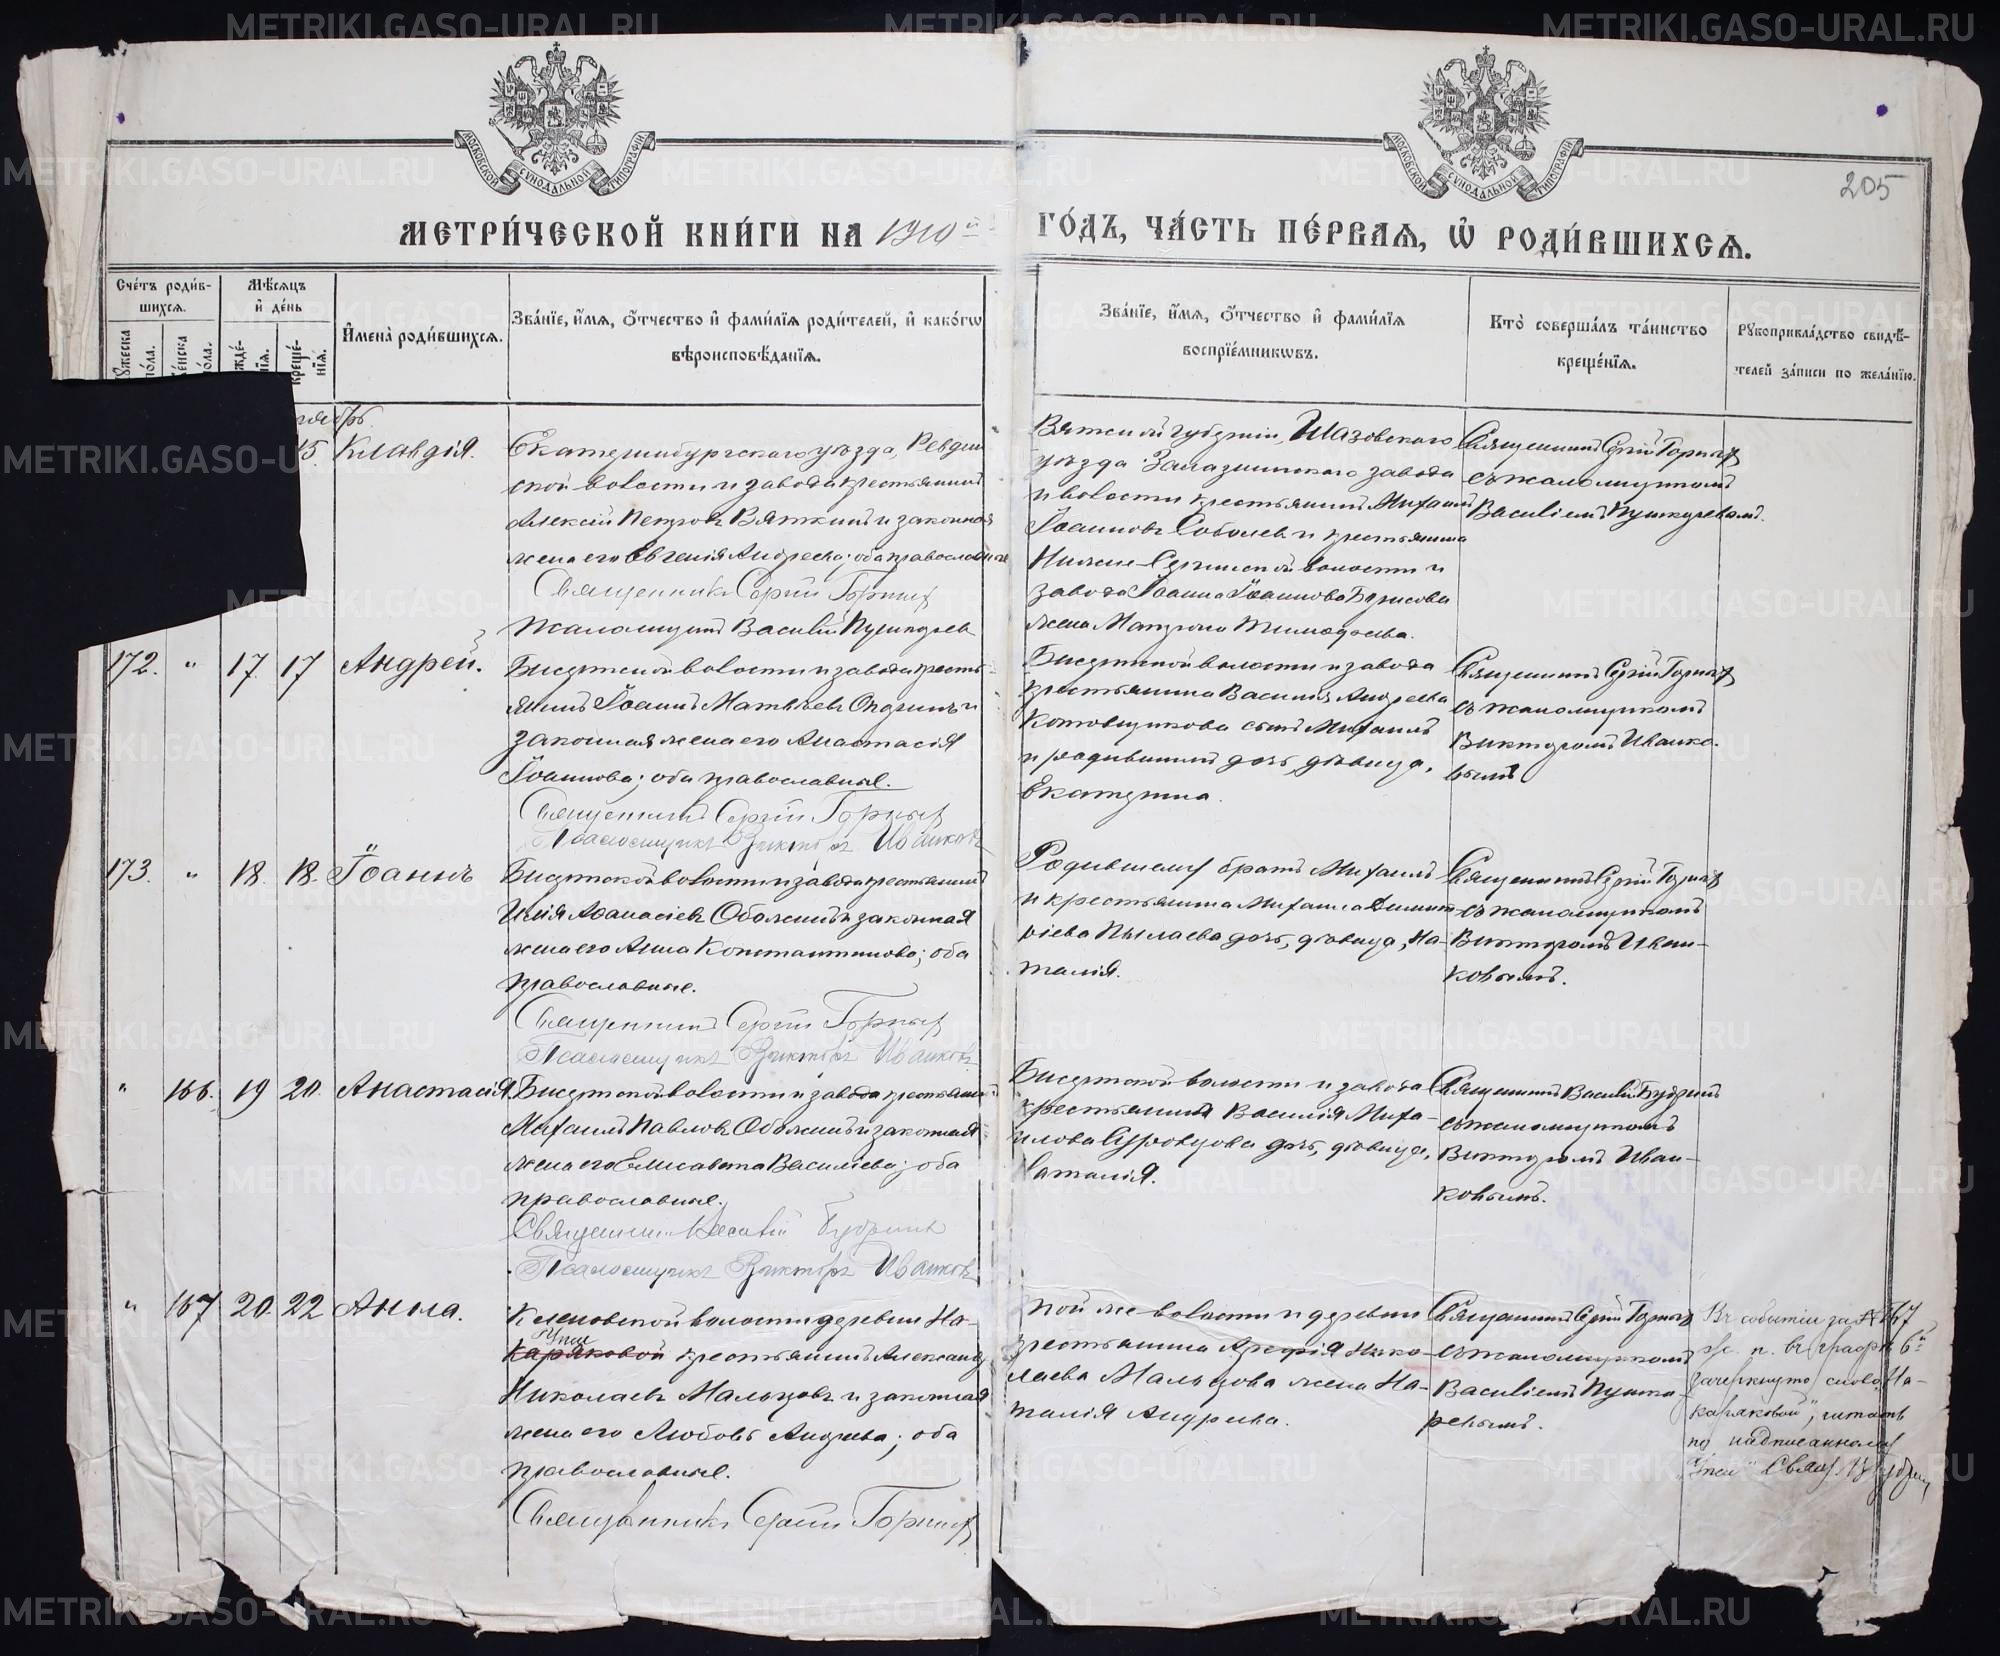 МОСКОВСКОЙ СѴНОДАЛЬНОЙ ТИПОГРАФІИ
МОСКОВСКОЙ СѴНОДАЛЬНОЙ ТИПОГРАФІИ
205
МЕТРИ́ЧЕСКОЙ КНИ́ГИ НА 1910й ГО́ДЪ, ЧА́СТЬ ПЕ́РВАѦ, Ѡ҆ РОДИ́ВШИХСѦ.
Сче́тъ роди́в-
шихсѧ.
Мѣ́сѧцъ
и҆ де́нь
И҆мена̀ роди́вшихсѧ.
Зва́нїе, и҆́мѧ, ѻ҆́тчество и҆ фами́лїѧ роди́телей, и҆ како́гѡ
вѣроисповѣ́данїѧ.
Зва́нїе, и҆́мѧ, ѻ҆́тчество и҆ фами́лїѧ
воспрїе́мникѡвъ.
Кто̀ соверша́лъ та́инство
креще́нїѧ.
Рꙋкоприкла́дство свидѣ́-
телей за́писи по жела́нїю.
15. Клавдія.
Екатеринбургскаго уѣзда, Ревдин
ской волости и завода крестьянинъ
Алексій Петров Вяткинъ и законная
жена его Евгенія Андреева; оба православные
Священникъ Сергій Горныхъ
Псаломщикъ Василій Пушкарев
Вятской губерніи, Глазовскаго
уѣзда Залазнинскаго завода
и волости крестьянинъ Михаилъ
Іоанновъ Соболев и крестьянина
Нижне-Сергинской волости и
завода Іоанна Іоаннова Борисова
жена Матрона Тимофеева.
Священникъ Сергій Горныхъ
съ псаломщикомъ
Василіемъ Пушкаревымъ.
172. " 17. 17 Андрей.
Бисертской волости и завода кресть-
янинъ Іоаннъ Матвѣев Опаринъ и
законная жена его Анастасія
Іоаннова; оба православные.
Священникъ Сергій Горныхъ
Псаломщикъ Викторъ Иванковъ
Бисертской волости и завода
крестьянина Василія Андреева
Котовщикова сынъ Михаилъ
и родившаго дочь, дѣвица,
Екатерина.
Священникъ Сергій Горныхъ
съ псаломщикомъ
Викторомъ Иванко-
вымъ
173. " 18. 18. Іоаннъ
Бисертской волости и завода крестьянинъ
Илія Аѳанасіев Оболенинъ и законная
жена его Анна Константинова; оба
православные.
Священникъ Сергій Горныхъ
Псаломщикъ Викторъ Иванковъ
Родившему братъ Михаилъ
и крестьянина Михаила Димит-
ріева Пылаева дочь, дѣвица, На-
талія.
Священникъ Сергій Горныхъ
съ псаломщикомъ
Викторомъ Иван-
ковымъ.
" 166. 19 20. Анастасія
Бисертской волости и завода крестьянинъ
Михаилъ Павлов Оболенинъ и законная
жена его Елисавета Василіева; оба
православные.
Священникъ Василій Будринъ
Псаломщикъ Викторъ Иванковъ
Бисертской волости и завода
крестьянина Василія Миха-
илова Суровцова дочь, дѣвица,
Наталія.
Священникъ Василій Будринъ
съ псаломщикомъ
Викторомъ Иван-
ковымъ.
" 167 20. 22 Анна.
Кленовской волости деревни На-
каряковой крестьянинъ Александръ
Николаевъ Мальцовъ и законная
жена его Любовь Андреева; оба
православные.
Священникъ Сергій Горныхъ
Той же волости и деревни
крестьянина Арефія Нико-
лаева Мальцова жена На-
талія Андреева.
Священникъ Сергій Горныхъ
съ псаломщикомъ
Василіемъ Пушка-
ревымъ.
Въ событіи за № 167
ж. п. въ графѣ 6й
зачеркнуто слово „На-
каряковой", читать
по надписанному
METRIKI.GASO-URAL.RU